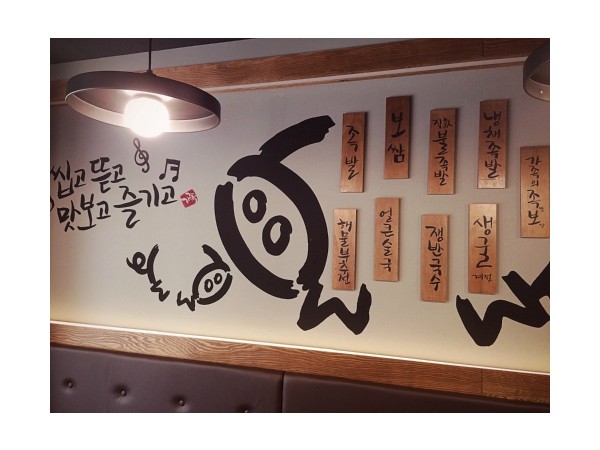 씹고 뜯고
맛보고 즐기고
족발
보쌈
직화
불족발
냉채족발
가족의 족보
해물부추전
얼큰술국
쟁반국수
생굴
계절